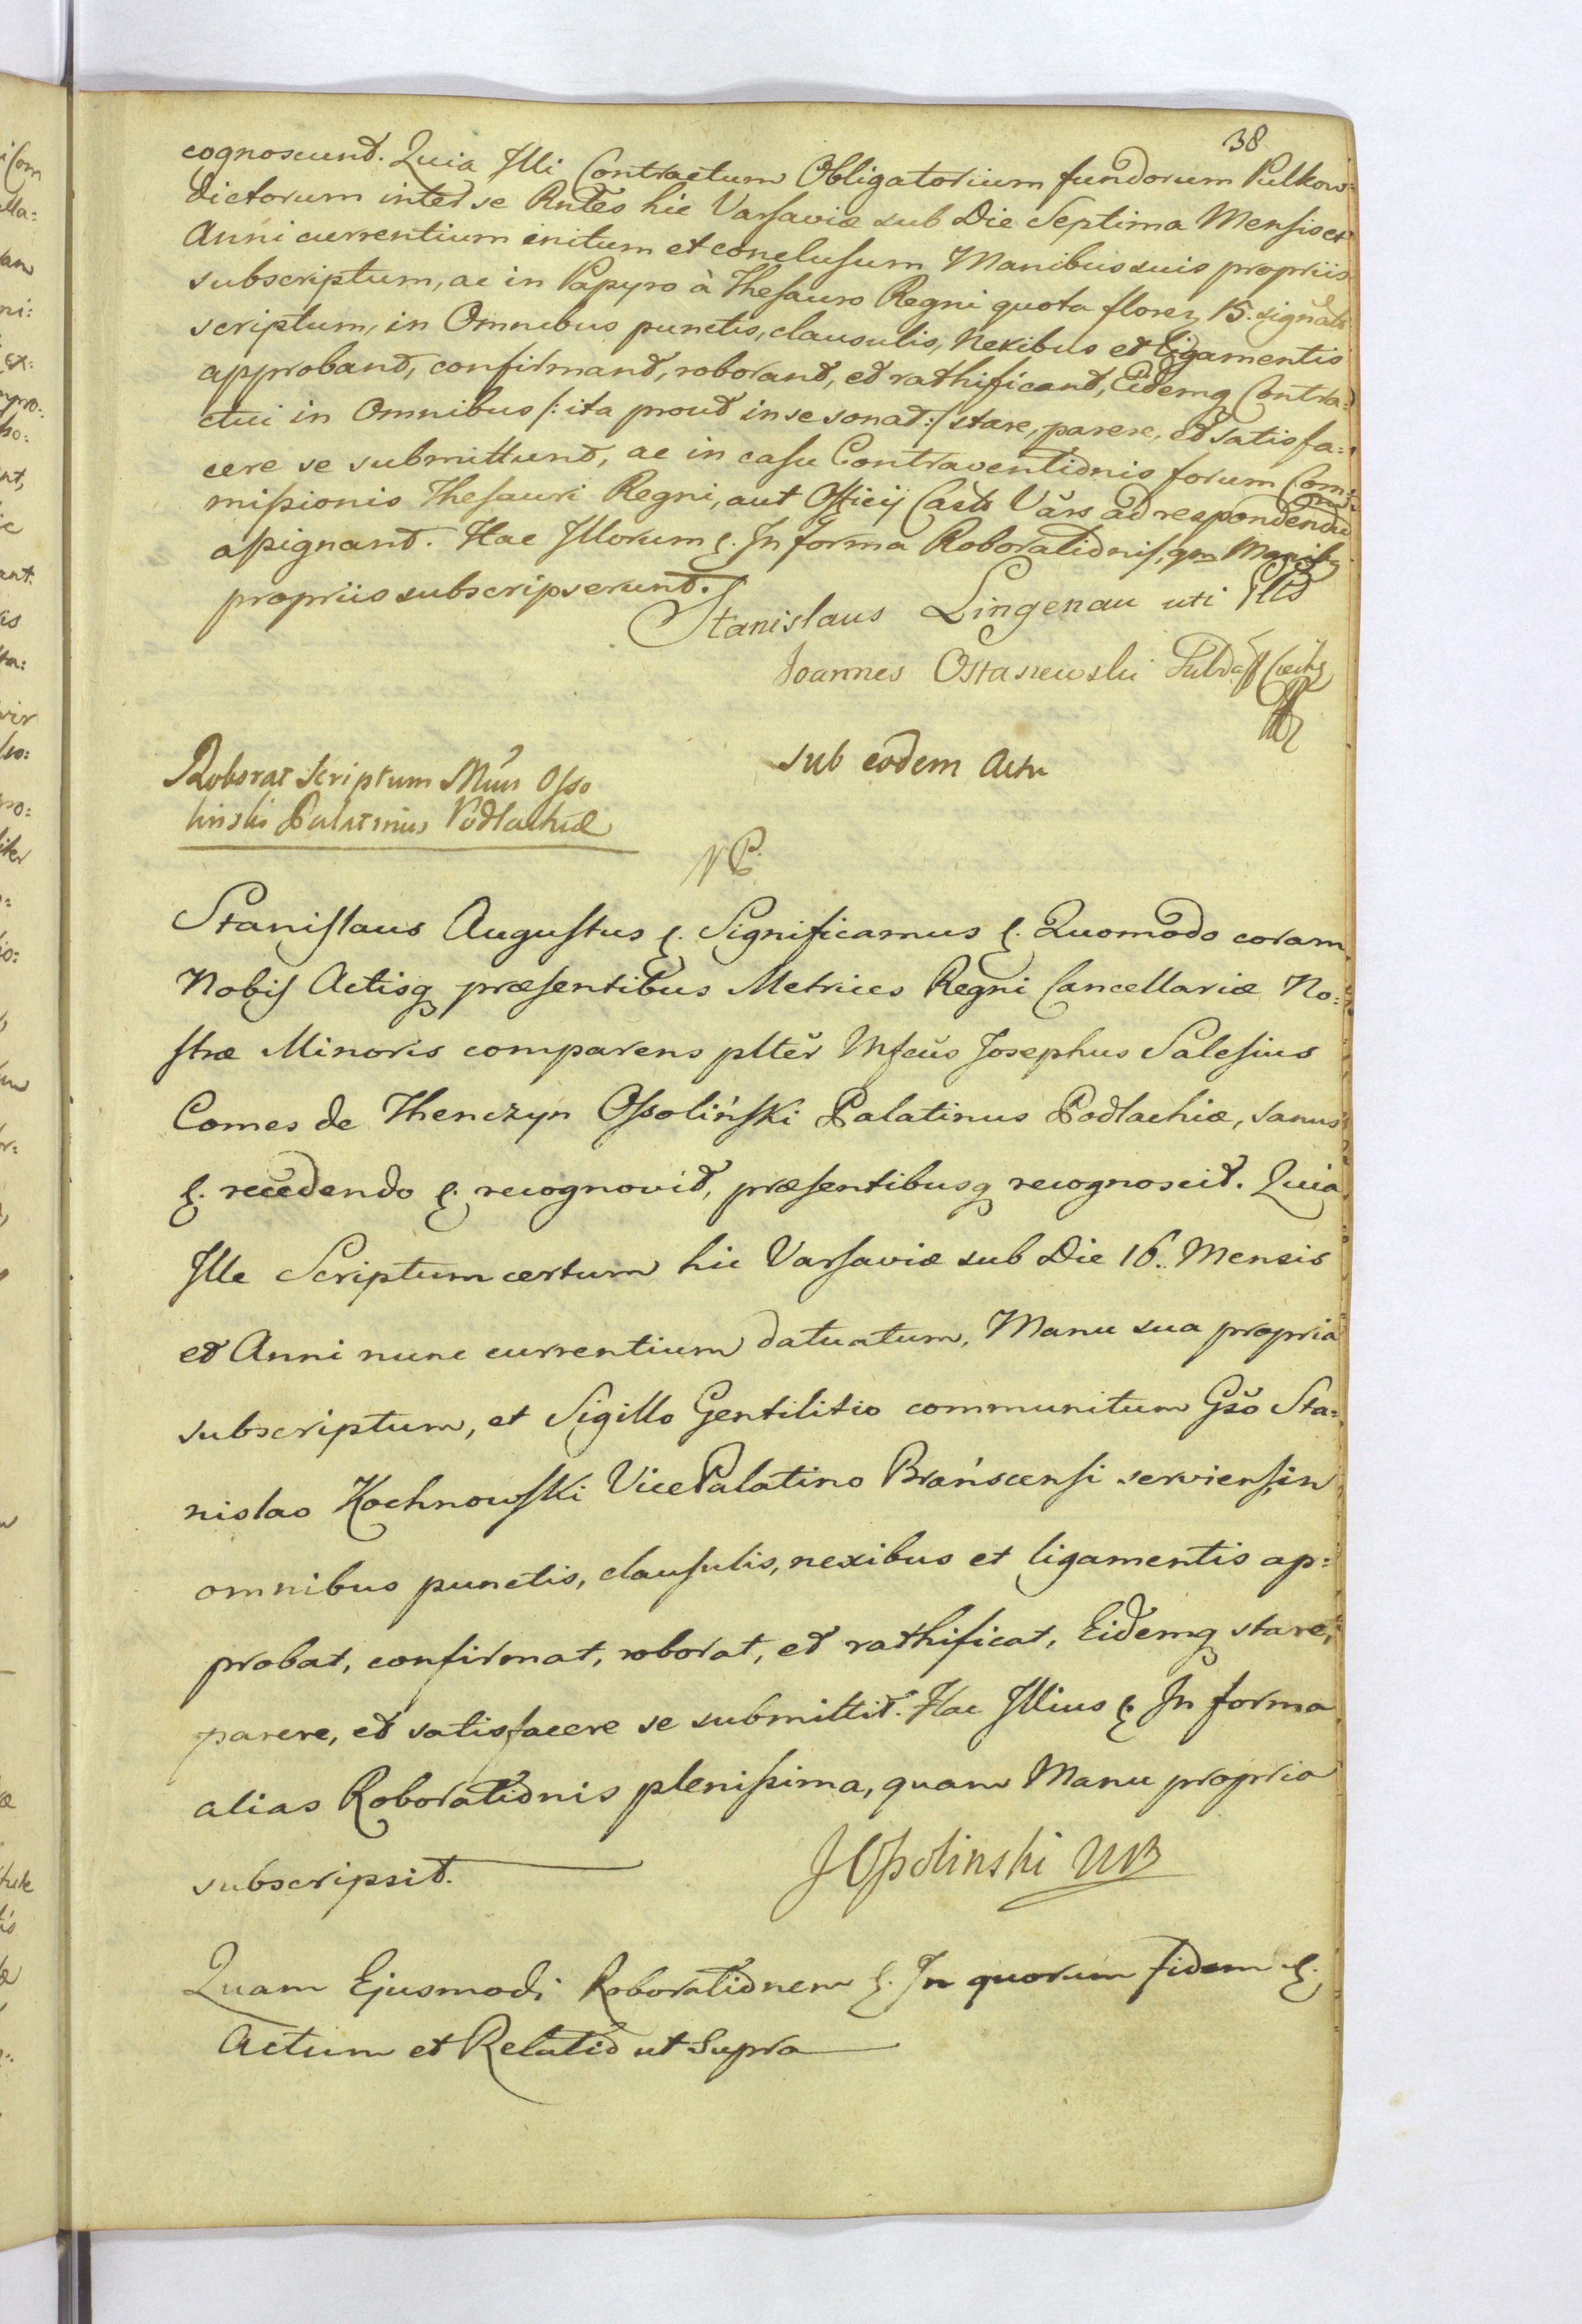 38
cognoscunt. Quia Illi Contractum Obligatorium fundorum Pulkow=
dictorum inter se Rntes hic Varsaviæ sub Die Septima Mensis et
Anni currentium initum et conclusum Manibus suis propriis
subscriptum, ac in Papyro à Thesauro Regni quota floren 15. signato
scriptum, in Omnibus punctis, clausulis, Nexibus et ligamentis
approbant, confirmant, roborant, et rathificant, Eidemq Contra=
ctui in Omnibus /: ita prout in se sonat :/ stare, parere, et satisfa=
cere se submittunt, ac in casu Contraventionis forum Com=
missionis Thesauri Regni, aut Officij Castr Vars ad respondendum
assignant. Hac Illorum &. In forma Roborationis, qm Manibus
propriis subscripserunt.
Stanislaus Lingenau uti
Joannes Ostaszewski
sub eodem Actu
Roborat Scriptum Mcus Osso
linski Palatinus Podlachiæ
Stanislaus Augustus &. Significamus &. Quomodo coram
Nobis Actisq præsentibus Metrices Regni Cancellariæ No=
stræ Minoris comparens plter Mfcus Josephus Salesius
Comes de Thenczyn Ossoliński Palatinus Podlachiæ, sanus
&. recedendo &. recognovit, præsentibusq recognoscit. Quia
Ille Scriptum certum hic Varsaviæ sub Die 16. Mensis
et Anni nunc currentium datuatum, Manu sua propria
subscriptum, et Sigillo Gentilitio communitum Gso Sta=
nislao Kochnowski VicePalatino Brańscensi serviens, in
omnibus punctis, clausulis, nexibus et ligamentis ap=
probat, confirmat, roborat, et rathificat, Eidemq stare,
parere, et satisfacere se submittit. Hac Illius &. In forma
alias Roborationis plenissima, quam Manu propria
subscripsit.
J Ossolinski WP
Quam Ejusmodi Roborationem &. In quorum fidem &.
Actum et Relatio ut Supra